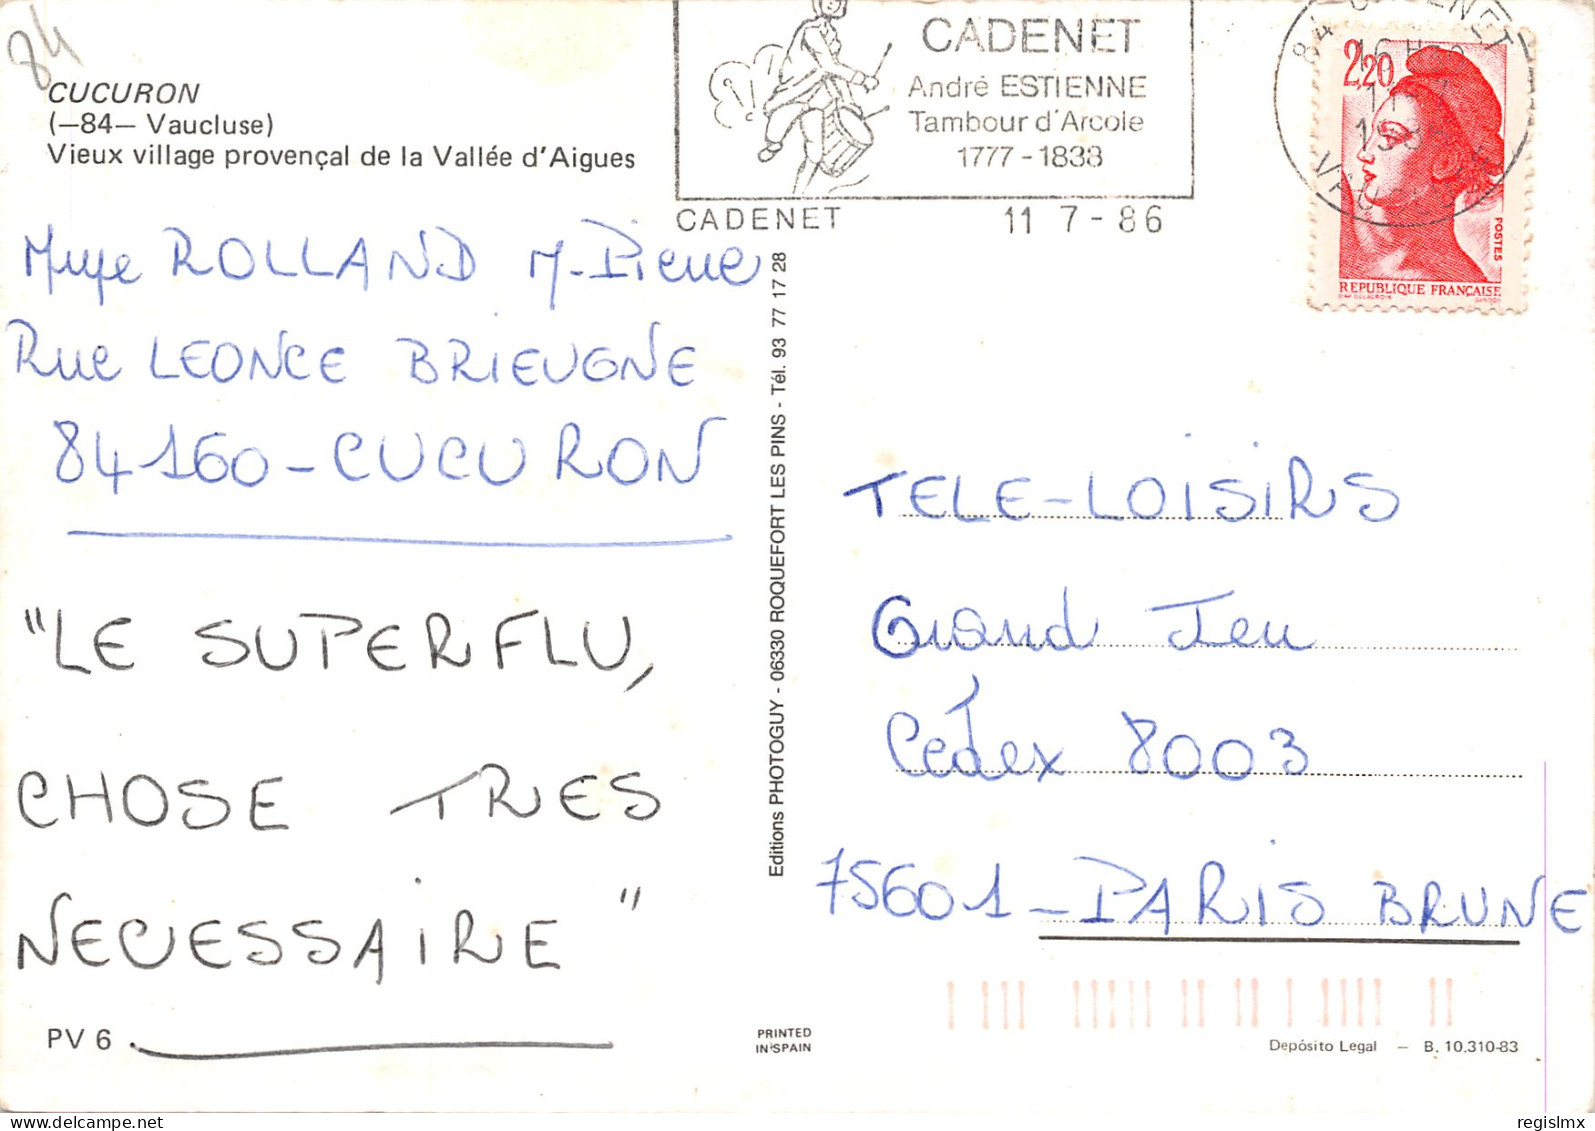 84
CUCURON
(—84— Vaucluse)
Vieux village provençal de la Vallée d'Aigues
CADENET
André ESTIENNE
Tambour d'Arcole
1777 - 1838
CADENET 11 7 - 86
2,20
POSTES
REPUBLIQUE FRANÇAISE
ROLLAND M-Pierre
Rue LEONCE BRIEUGNE
84160 - CUCURON
"LE SUPERFLU,
CHOSE TRES
NECESSAIRE"
PV 6
Editions PHOTOGUY - 06330 ROQUEFORT LES PINS - Tél. 93 77 17 28
PRINTED
IN SPAIN
TELE-LOISIRS
Grand Jeu
Cédex 8003
75601 - PARIS BRUNE
Depósito Legal — B. 10.310-83
delcampe.net
regislmx